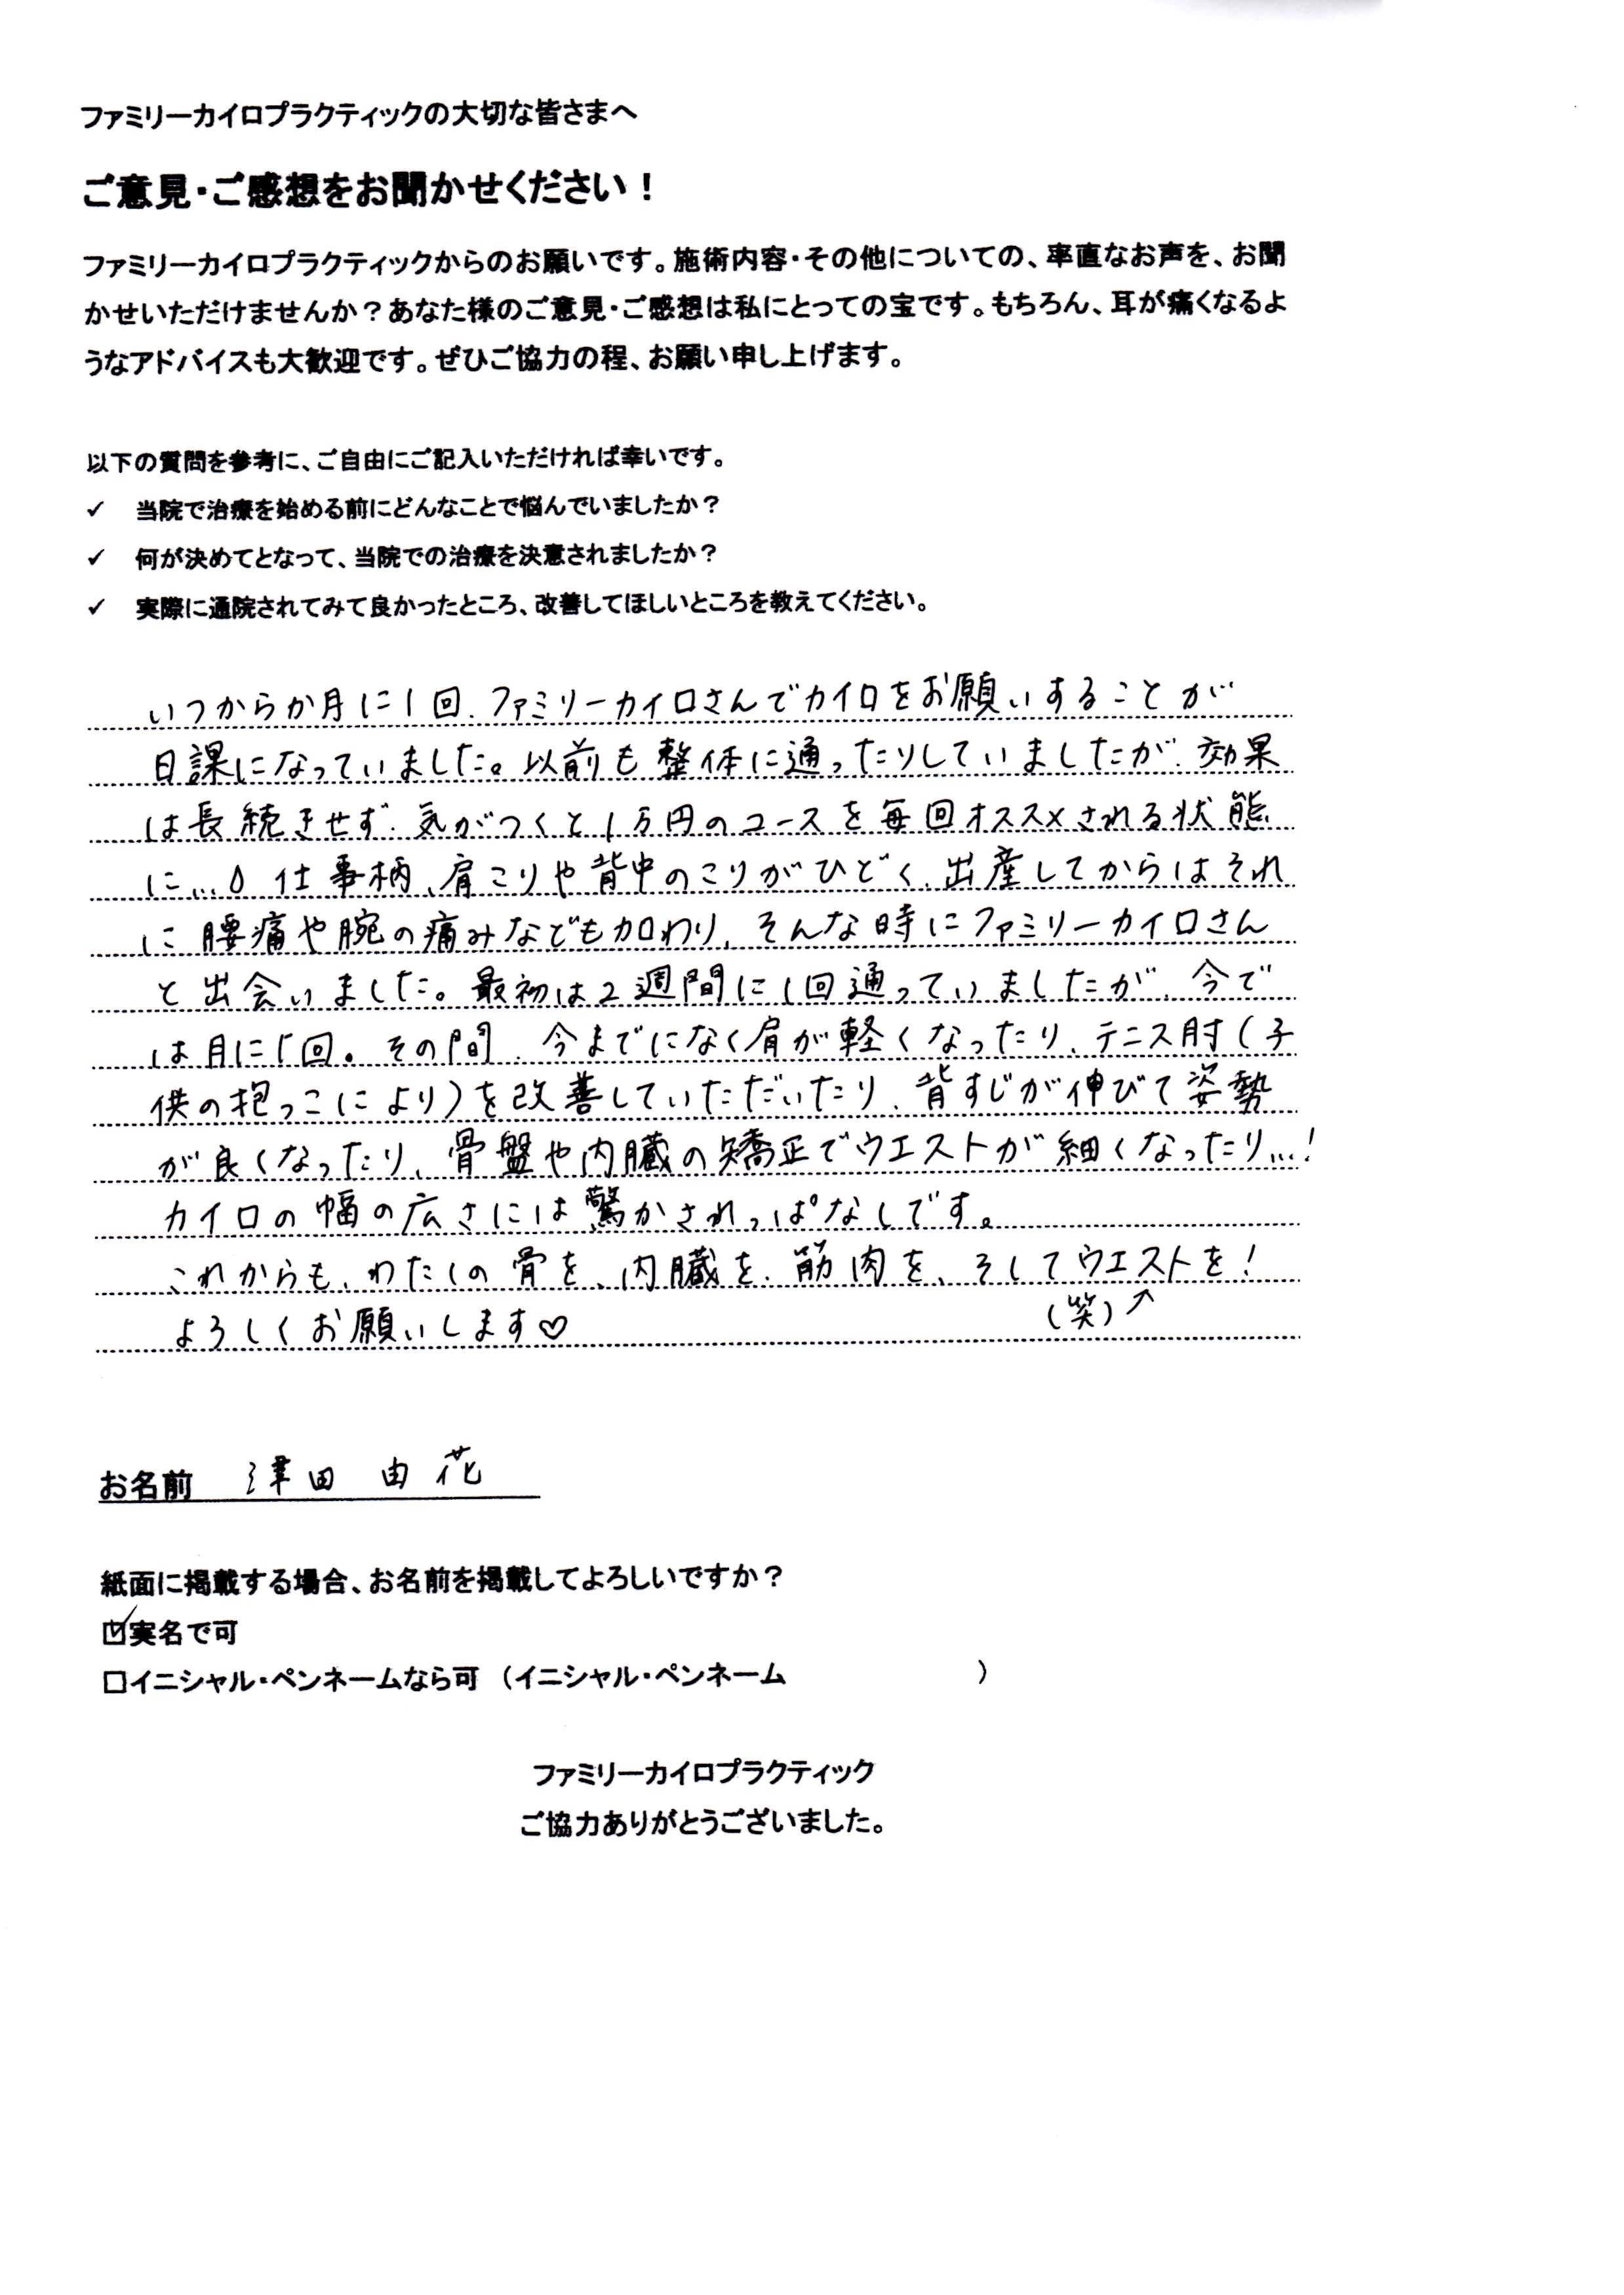 ファミリーカイロプラクティックの大切な皆さまへ
ご意見・ご感想をお聞かせください！
ファミリーカイロプラクティックからのお願いです。施術内容・その他についての、率直なお声を、お聞
かせいただけませんか？あなた様のご意見・ご感想は私にとっての宝です。もちろん、耳が痛くなるよ
うなアドバイスも大歓迎です。ぜひご協力の程、お願い申し上げます。
以下の質問を参考に、ご自由にご記入いただければ幸いです。
✓ 当院で治療を始める前にどんなことで悩んでいましたか？
✓ 何が決めてとなって、当院での治療を決意されましたか？
✓ 実際に通院されてみて良かったところ、改善してほしいところを教えてください。
いつからか月に1回、ファミリーカイロさんでカイロをお願いすることが
日課になっていました。以前も整体に通ったりしていましたが、効果
は長続きせず、気がつくと1万円のコースを毎回オススメされる状態
に…。仕事柄、肩こりや背中のこりがひどく、出産してからはそれ
に腰痛や腕の痛みなども加わり、そんな時にファミリーカイロさん
と出会いました。最初は2週間に1回通っていましたが、今で
は月に1回。その間、今までになく肩が軽くなったり、テニス肘（子
供の抱っこにより）を改善していただいたり、背すじが伸びて姿勢
が良くなったり、骨盤や内臓の矯正でウエストが細くなったり…！
カイロの幅の広さには驚かされっぱなしです。
これからも、わたしの骨を、内臓を、筋肉を、そしてウエストを！
よろしくお願いします♡ （笑）↗
お名前 津田 由花
紙面に掲載する場合、お名前を掲載してよろしいですか？
☑実名で可
□イニシャル・ペンネームなら可 （イニシャル・ペンネーム ）
ファミリーカイロプラクティック
ご協力ありがとうございました。